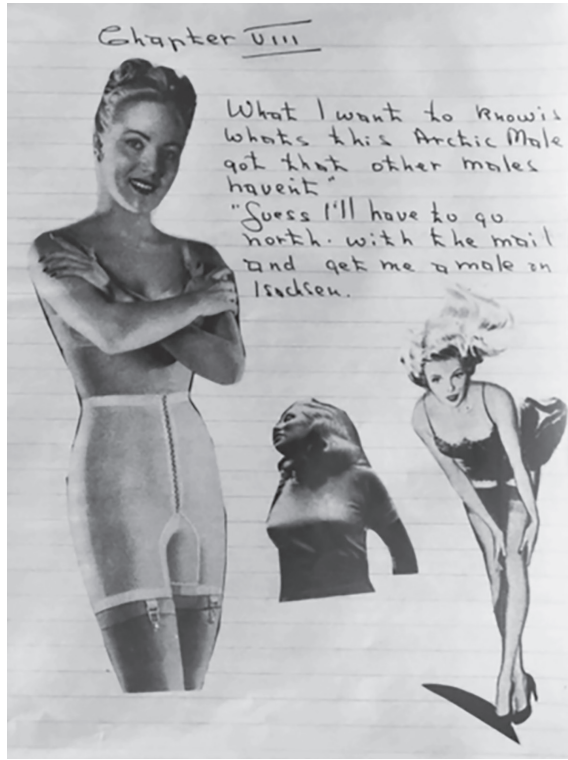 Chapter VIII
What I want to Know is
whats this Arctic Male
got that other males
havent"
"Guess I'll have to go
north. with the mail
and get me a male on
Isachsen.